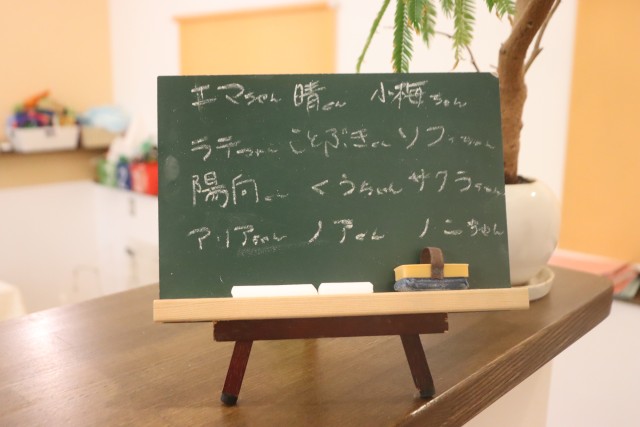 エマちゃん 晴くん 小梅ちゃん
ラテちゃん ことぶきくん ソフィちゃん
陽向くん くうちゃん サクラちゃん
アリアちゃん ノアくん ノニちゃん